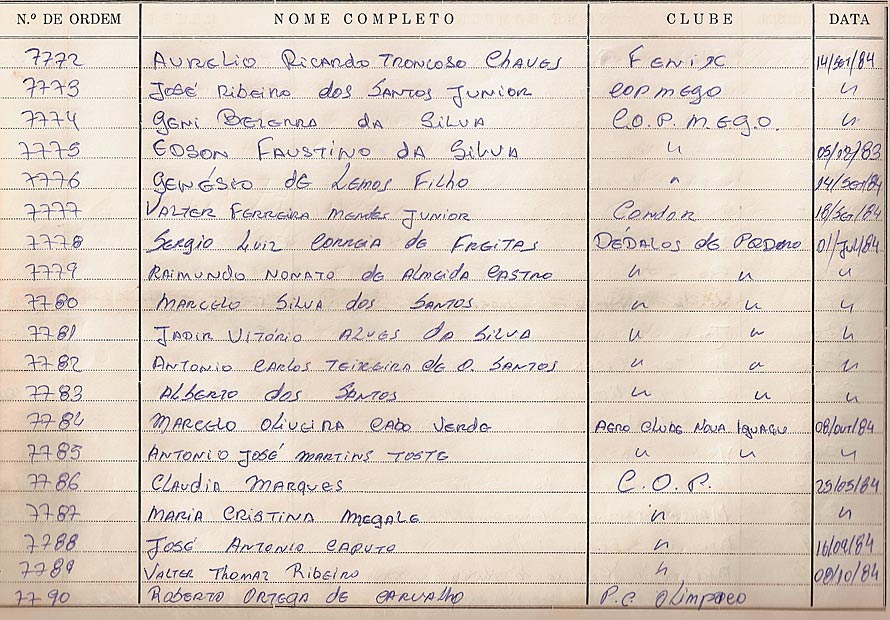 N.º DE ORDEM NOME COMPLETO CLUBE DATA
7772 AURELIO RICARDO TRONCOSO CHAVES FENIX 14/SET/84
7773 JOSÉ RIBEIRO dos SANTOS JUNIOR COPMEGO "
7774 GENI BEZERRA da SILVA C.O.P.M.E.G.O. "
7775 EDSON FAUSTINO da SILVA " 05/12/83
7776 GENÉSIO de LEMOS FILHO " 14/SET/84
7777 VALTER FERREIRA MENDES JUNIOR CONDOR 18/SET/84
7778 SERGIO LUIZ CORREIA de FREITAS DÉDALOS de 01/JUL/84
7779 RAIMUNDO NONATO de ALMEIDA CASTRO " " "
7780 MARCELO SILVA dos SANTOS " " "
7781 JADIR VITÓRIO ALVES da SILVA " " "
7782 ANTONIO CARLOS TEIXEIRA de O. SANTOS " " "
7783 ALBERTO dos SANTOS " " "
7784 MARCELO OLIVEIRA CABO VERDE AERO CLUBE NOVA IGUAÇU 08/OUT/84
7785 ANTONIO JOSÉ MARTINS TOSTE " " "
7786 CLAUDIA MARQUES C.O.P. 25/05/84
7787 MARIA CRISTINA MEGALE " "
7788 JOSÉ ANTONIO CAPUTO " 16/09/84
7789 VALTER THOMAZ RIBEIRO " 08/10/84
7790 ROBERTO ORTEGA DE CARVALHO P.C.